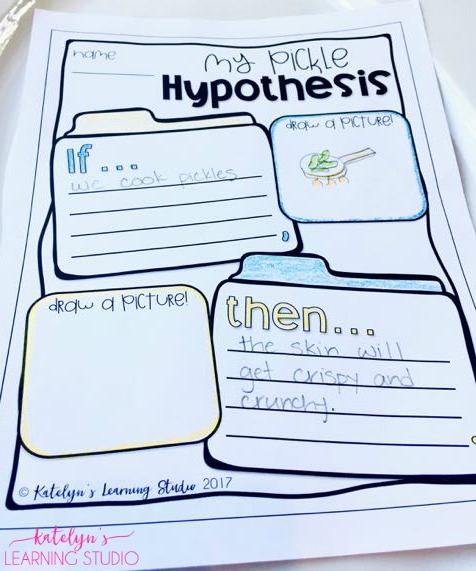 name
my pickle
Hypothesis
draw a picture!
If...
we cook pickles
,
draw a picture!
then...
the skin will
get crispy and
crunchy.
© Katelyn's Learning Studio 2017
katelyn's
LEARNING STUDIO